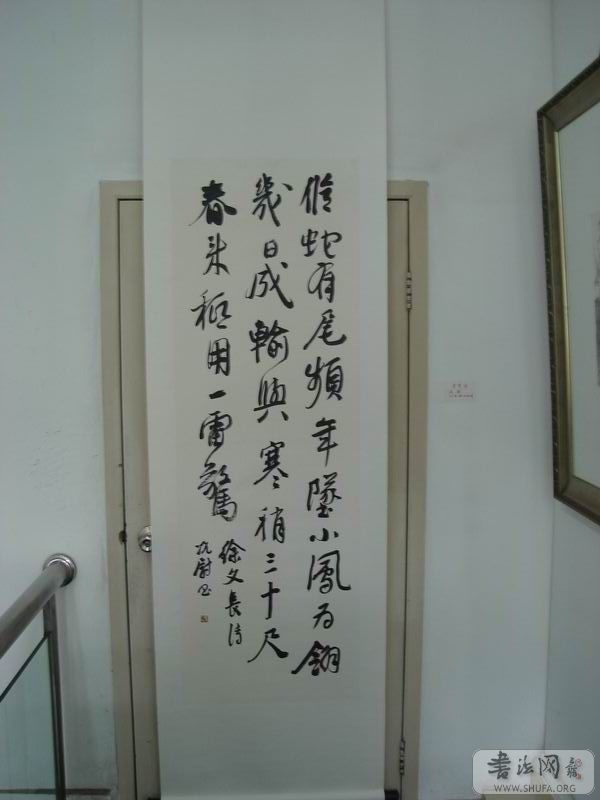 脩蛇有尾頻年墜小鳳为翎
幾日成輸與寒稍三十尺
春来秪用一雷驚
徐文長詩
书法网
WWW.SHUFA.ORG